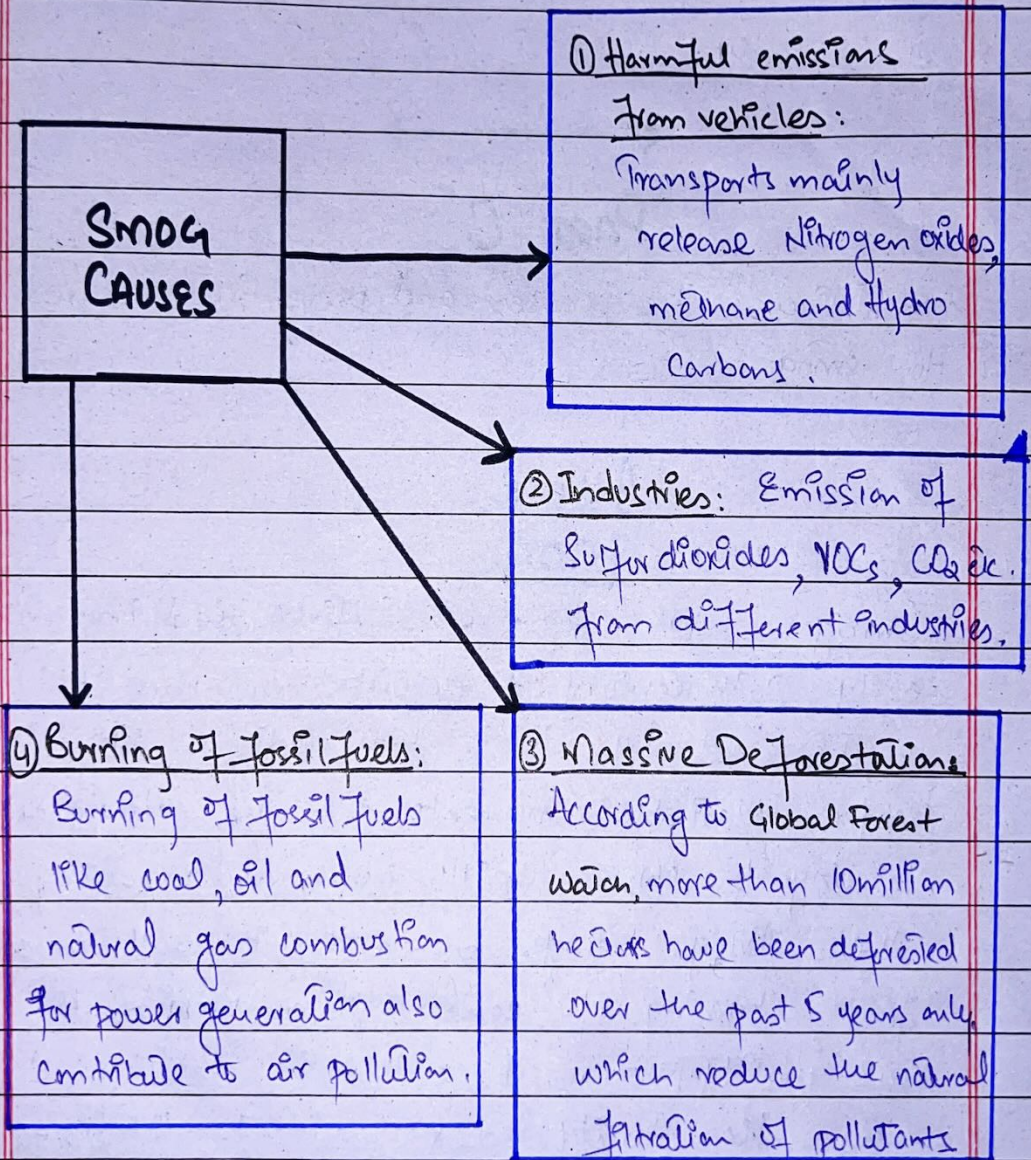 SMOG
CAUSES
① Harmful emissions
from vehicles:
Transports mainly
release Nitrogen oxides,
methane and Hydro
Carbons.
② Industries: Emission of
Sulfur dioxides, VOCs, CO2 etc.
from different industries.
③ Massive Deforestation:
According to Global Forest
Watch, more than 10 million
hectors have been deforested
over the past 5 years only
which reduce the natural
filtration of pollutants
④ Burning of fossil fuels:
Burning of fossil fuels
like coal, oil and
natural gas combustion
for power generation also
contribute to air pollution.